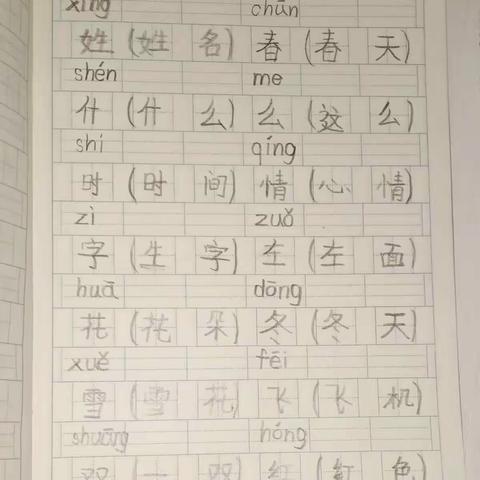 xìng chūn
姓 (姓 名) 春 (春 天)
shén me
什 (什 么) 么 (这 么)
shí qíng
时 (时 间) 情 (心 情)
zì zuǒ
字 (生 字) 左 (左 面)
huā dōng
花 (花 朵) 冬 (冬 天)
xuě fēi
雪 (雪 花) 飞 (飞 机)
shuāng hóng
双 (一 双) 红 (红 色)